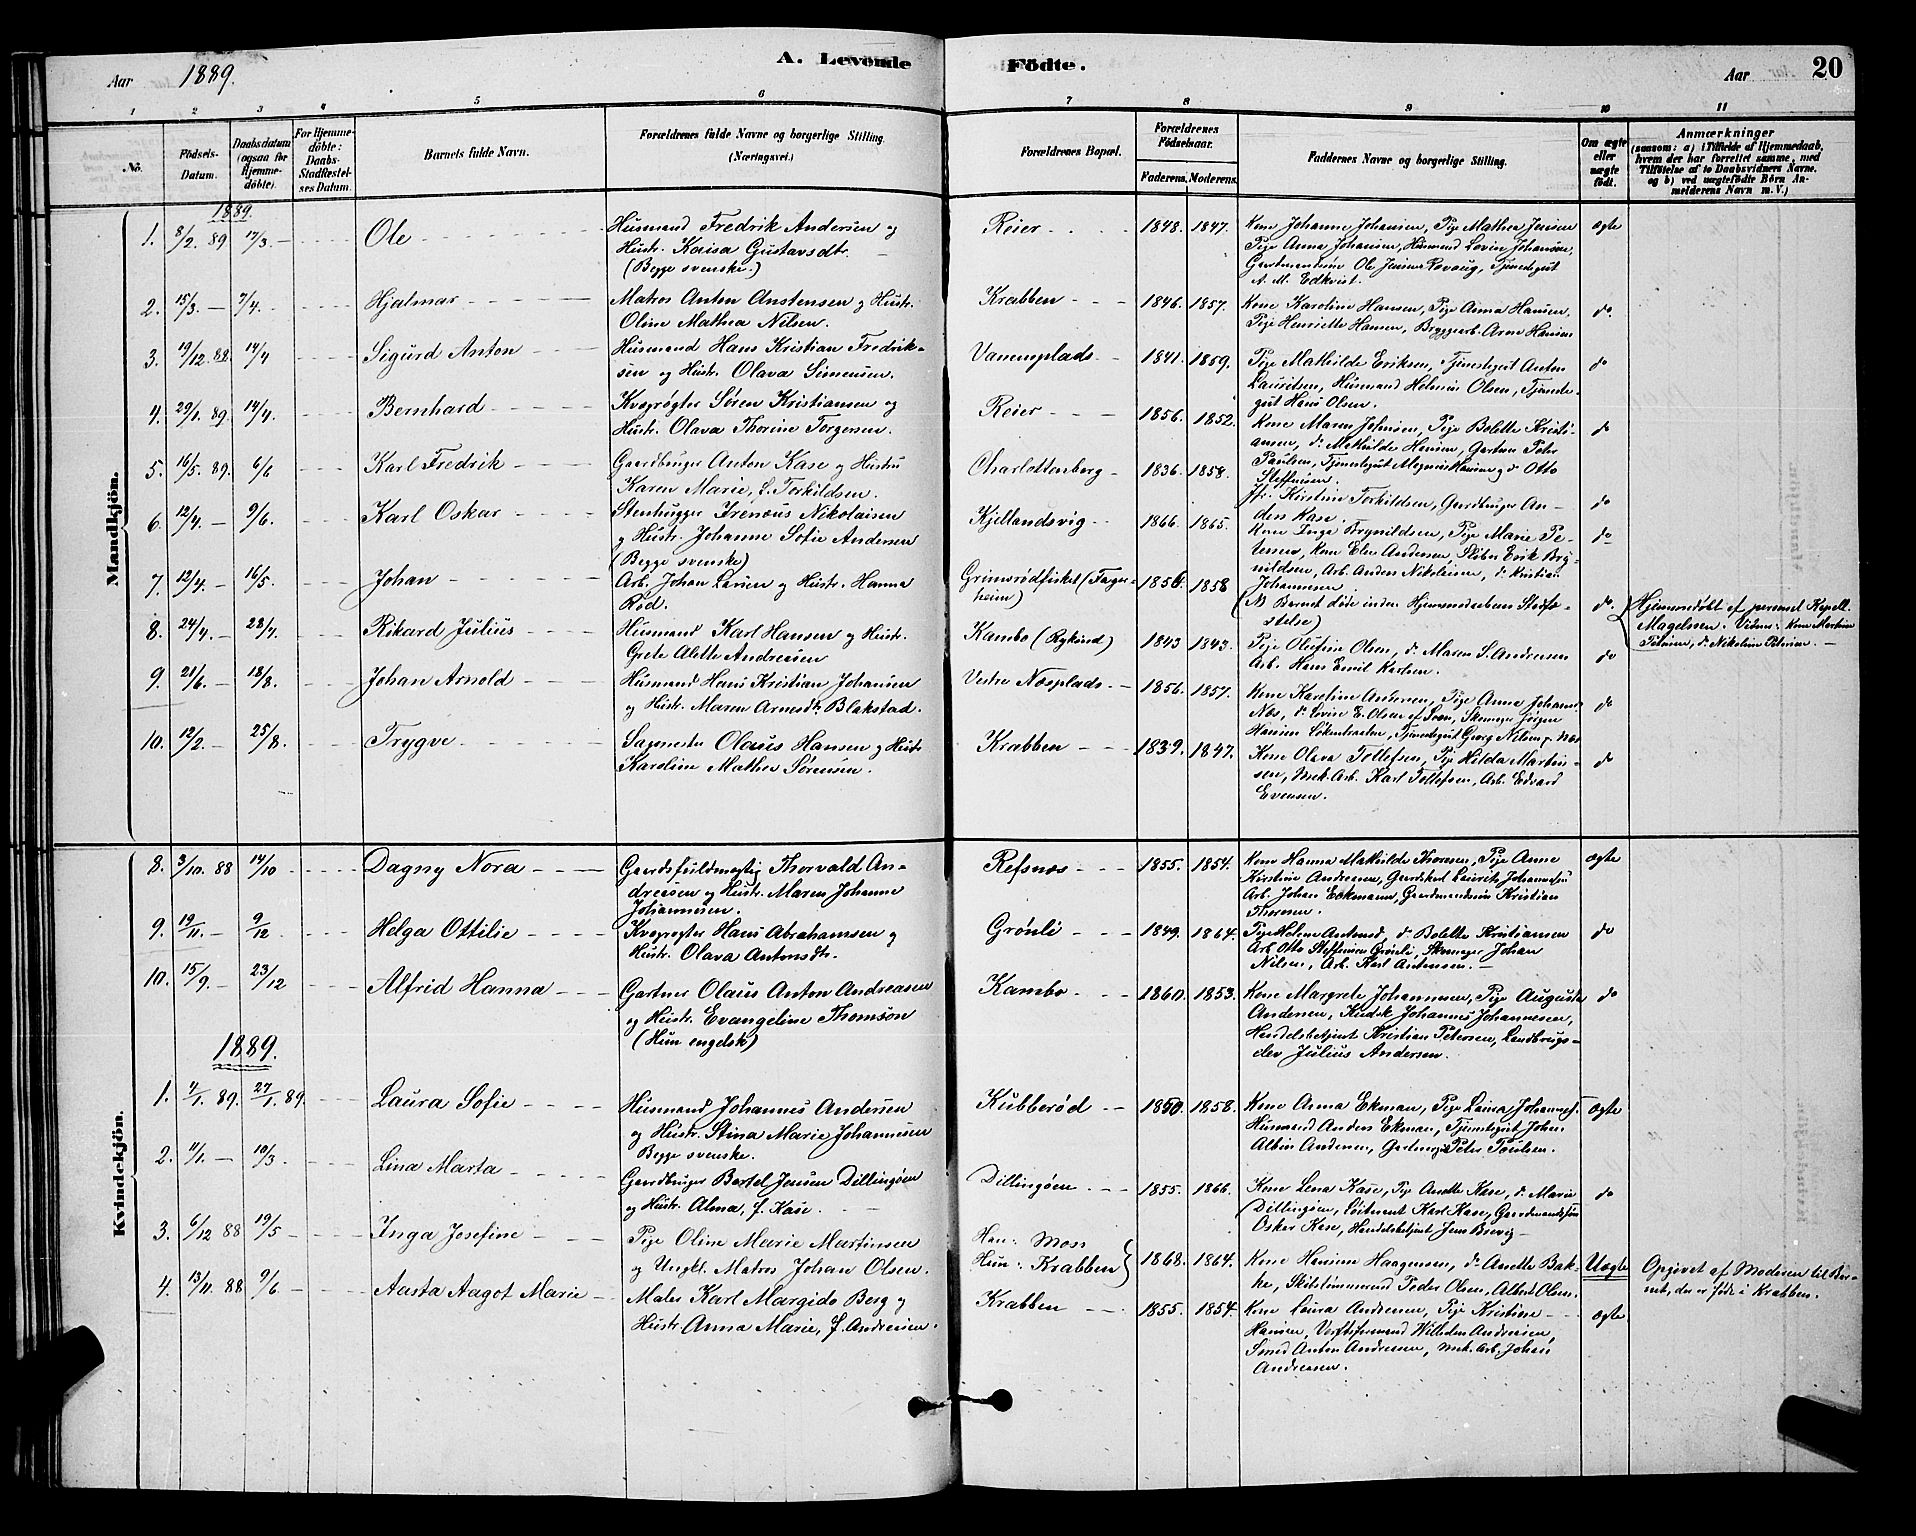 Aar 1889. A. Levende Födte. Aar 20
1 2 3 4 5 6 7 8 9 10 11
No. Födsels-Datum. Daabsdatum (ogsaa for Hjemmedöbte). For Hjemmedöbte: Daabs-Stadfæstelses Datum. Barnets fulde Navn. Forældrenes fulde Navne og borgerlige Stilling. (Næringsvei.) Forældrenes Bopæl. Forældrenes Födselsaar. Faderens. Moderens. Faddernes Navne og borgerlige Stilling. Om ægte eller uægte födt. Anmærkninger (saasom: a) i Tilfælde af Hjemmedaab, hvem der har forrettet samme, med Tilföielse af to Daabsvidners Navne, og b) ved uægtefödte Börn Anmelderens Navn m. V.)
Mandkjön.
1889.
1. 8/2. 89 17/3 Ole Husmand Fredrik Andersen og Reier 1848. 1847. Kone Johanne Johansen, Pige Mathea Jensen ægte
Hustr. Kaisa Gustavsdt. Pige Anna Johansen, Husmand Lovise Johansen,
(Begge svenske.) Gaardmandssøn Ole Jensen Ravaug, Tjenestegut
A. M. Edkvist.
2. 15/3. 7/4. Hjalmar Matros Anton Anstensen og Hustr. Krabben 1846. 1857. Kone Karoline Hansen, Pige Anna Hansen, do
Oline Mathea Nilsen. Pige Henriette Hansen, Bryggearb. Arne Hansen
3. 19/12. 88. 14/4 Sigurd Anton Husmand Hans Kristian Fredrik- Vanemplads 1841. 1859. Pige Mathilde Eriksen, Tjenestegut Anton do
sen og Hustr. Olava Simensen. Lauritsen, Husmand Helmer Olsen, Tjeneste-
gut Hans Olsen.
4. 29/1. 89. 14/4. Bernhard Kvægrøgter Søren Kristiansen og Reier 1856. 1852. Kone Maren Johnsen, Pige Bolette Kristi- do
Hustr. Olava Thorine Torgersen. ansen, do Mathilde Hansen, Gartner Peter
5. 16/5. 89. 6/6 Karl Fredrik Gaardbruger Anton Kase og Hustru Charlottenberg 1836. 1858. Paulsen, Tjenestegut Magnus Hansen og do Otto
Karen Marie, f. Torkildsen. Steffensen.
6. 12/4. 9/6. Karl Oskar Stenhugger Irenæus Nikolaisen Kjellandsvig 1866. 1865. Jfr. Kirstine Torkildsen, Gaardbruger An- do
og Hustr. Johanne Sofie Andersen ders Kase.
(Begge svenske) Kone Inge Brynildsen, Pige Marie Pe- do
tersen, Kone Elen Andersen, Sliber Erik Bry-
7. 12/4. 16/5. Johan Arb. Johan Larsen og Hustr. Hanna Grimsrødfisket (Fager- 1856. 1858 nildsen, Arb. Anders Nikolaisen, do Kristian
Rød. heim) Johannesen
(NB Barnet døde inden Hjemmedaabens Stadfæ- do. Hjemmedøbt af personel Kapell.
stelse) Magelssen. Vidner: Kone Martine
8. 24/4. 28/7. Rikard Julius Husmand Karl Hansen og Hustr. Kambo (Rykind) 1843 1843. Pige Olufine Olsen, do Maren S. Andreasen do Petersen, do Nikoline Petersen.
Grete Alette Andreasen Arb. Hans Emil Karlsen.
9. 21/6. 18/8. Johan Arnold Husmand Hans Kristian Johansen Vestre Næsplads 1856. 1857. Kone Karoline Andersen, Pige Anna Johanns. do
og Hustr. Maren Arnesdtr. Blakstad. Næs, do Lovise E. Olsen af Soon, Skomager Jørgen
Hansen Løkenhaden, Tjenestegut Georg Nilsen p. Næs
10. 12/2. 25/8. Trygve Sagmester Olaus Hansen og Hustr. Krabben 1839. 1847. Kone Olava Tollefsen, Pige Hilda Martin- do
Karoline Mathea Sørensen. sen, Mek. Arb. Karl Tollefsen, Arb. Edvard
Evensen.
Kvindekjön.
8. 3/10. 88 14/10 Dagny Nora Gaardsfuldmægtig Thorvald An- Refsnæs 1855. 1854. Kone Hanna Mathilde Thoresen, Pige Anne ægte
dreasen og Hustr. Maren Johanne Kirstine Andreasen, Gaardskarl Laurits Johannesen
Johannesen. Arb. Johan Eckmann, Gaardmandssøn Kristian
Thoresen.
9. 19/11. 9/12 Helga Ottilie Kvægrøgter Hans Abrahamsen og Grønli 1849. 1864. Pige Helene Antonsd., do Bolette Kristiansen do
Hustr. Olava Antonsdtr. Arb. Otto Steffensen Grønli, Skomager Johan
Nilsen, Arb. Karl Antonsen.
10. 15/9. 23/12 Alfrid Hanna Gartner Olaus Anton Andreasen Kambo 1860. 1853. Kone Margrete Johannesen, Pige Augusta do
og Hustr. Evangeline Thomson Andersen, Kudsk Johannes Johannesen,
(Hun engelsk) Handelsbetjent Kristian Petersen, Landbrugs-
elev Julius Andersen.
1889.
1. 4/1. 89. 27/1. 89. Laura Sofie Husmand Johannes Andersen Kubberød 1850. 1858. Kone Anna Ekman, Pige Laura Johannes. ægte
og Hustr. Stina Marie Johannesen Husmand Anders Ekman, Tjenestegut Johan
Begge svenske. Albin Andersen, Gartner Peter Poulsen.
2. 11/1. 10/3. Lina Marta Gaardbruger Bertel Jensen Dillingøen Dillingøen 1855. 1866. Kone Lena Kase, Pige Anette Kase, do Marie do
og Hustr. Alma, f. Kase. Dillingøen, Løitenant Karl Kase, Gaardmandssøn
Oskar Kase, Handelsbetjent Jens Brevig
3. 6/12 88 19/5. Inga Josefine Pige Oline Marie Martinsen Han: Moss 1868. 1864. Kone Hansine Haagensen, do Anette Bak- Uægte Opgivet af Moderen til Bar-
og Ungkl. Matros Johan Olsen. Hun: Krabben ke, Skibstømmermand Peder Olsen, Albert Olsen. net, der er født i Krabben.
4. 13/11 88 9/6. Aasta Aagot Marie Maler Karl Margido Berg og Krabben 1855. 1854. Kone Laura Andresen, Pige Kristine ægte
Hustr. Anna Marie, f. Andresen. Hansen, Verftsformand Wilhelm Andresen,
Smed Anton Andresen, Mek. Arb. Johan
Andreasen.